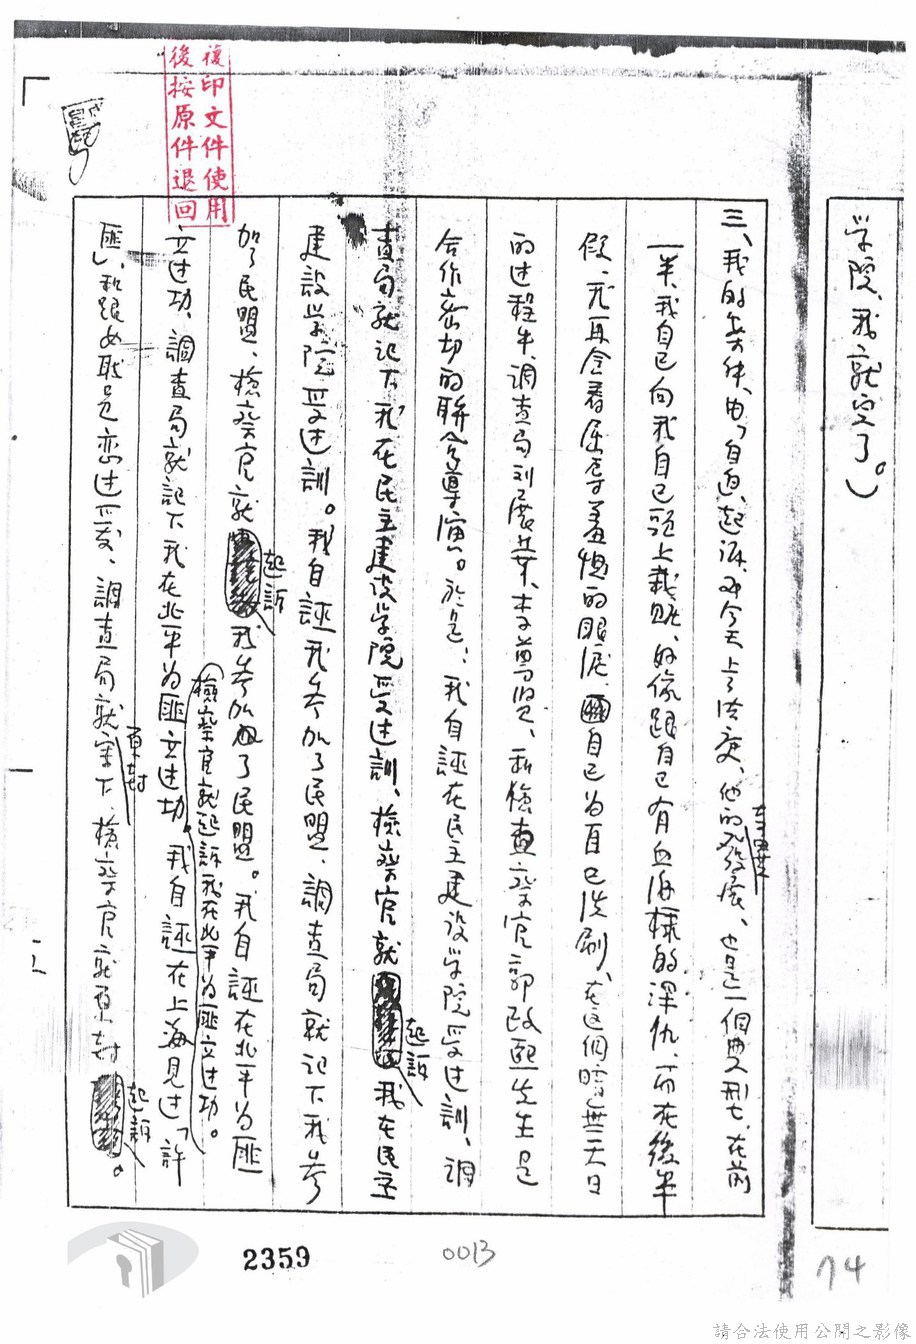 複印文件使用
後按原件退回
学院、我就空了。）
三、我的案件、由「自迫、起訴、по今天上了法庭、他的發展、也是一個典型、在前
一半、我自己向我自己頭上栽贓、好像跟自己有血海樣的深仇、而在後半
假、我再含着屈辱羞愧的眼淚、自己為自己洗刷、在這個暗無天日
的过程中、調查局刘展華、李尊賢、和檢查察官郭政熙先生是
合作密切的聯合導演。於是、我自誣在民主建設学院受过訓、調
查局就記下我在民主建設学院受过訓、檢察官就起訴我在民主
建設学院受过訓。我自誣我参加了民盟、調查局就記下我参
加了民盟、檢察官就起訴我参加了民盟。我自誣在北平为匪
立过功、調查局就記下我在北平为匪立过功。我自誣在上海見过「許
（檢察官就起訴我在北平为匪立过功。
匪」、和跟她耿是恋过愛、調查局就寫下、檢察官就更對起訴。
2359
0013
74
請合法使用公開之影像